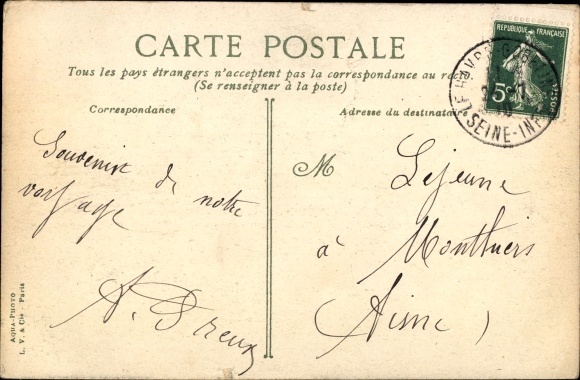 CARTE POSTALE
Tous les pays étrangers n'acceptent pas la correspondance au recto
(Se renseigner à la poste)
Correspondance
Adresse du destinataire
REPUBLIQUE FRANÇAISE
5c
POSTES
LE HAVRE
SEINE-INF
Souvenir de notre
voyage
A. Dreux
M Lejeune
à Monthiers
Aisne)
AQUA-PHOTO
L. V. & Cie - Paris